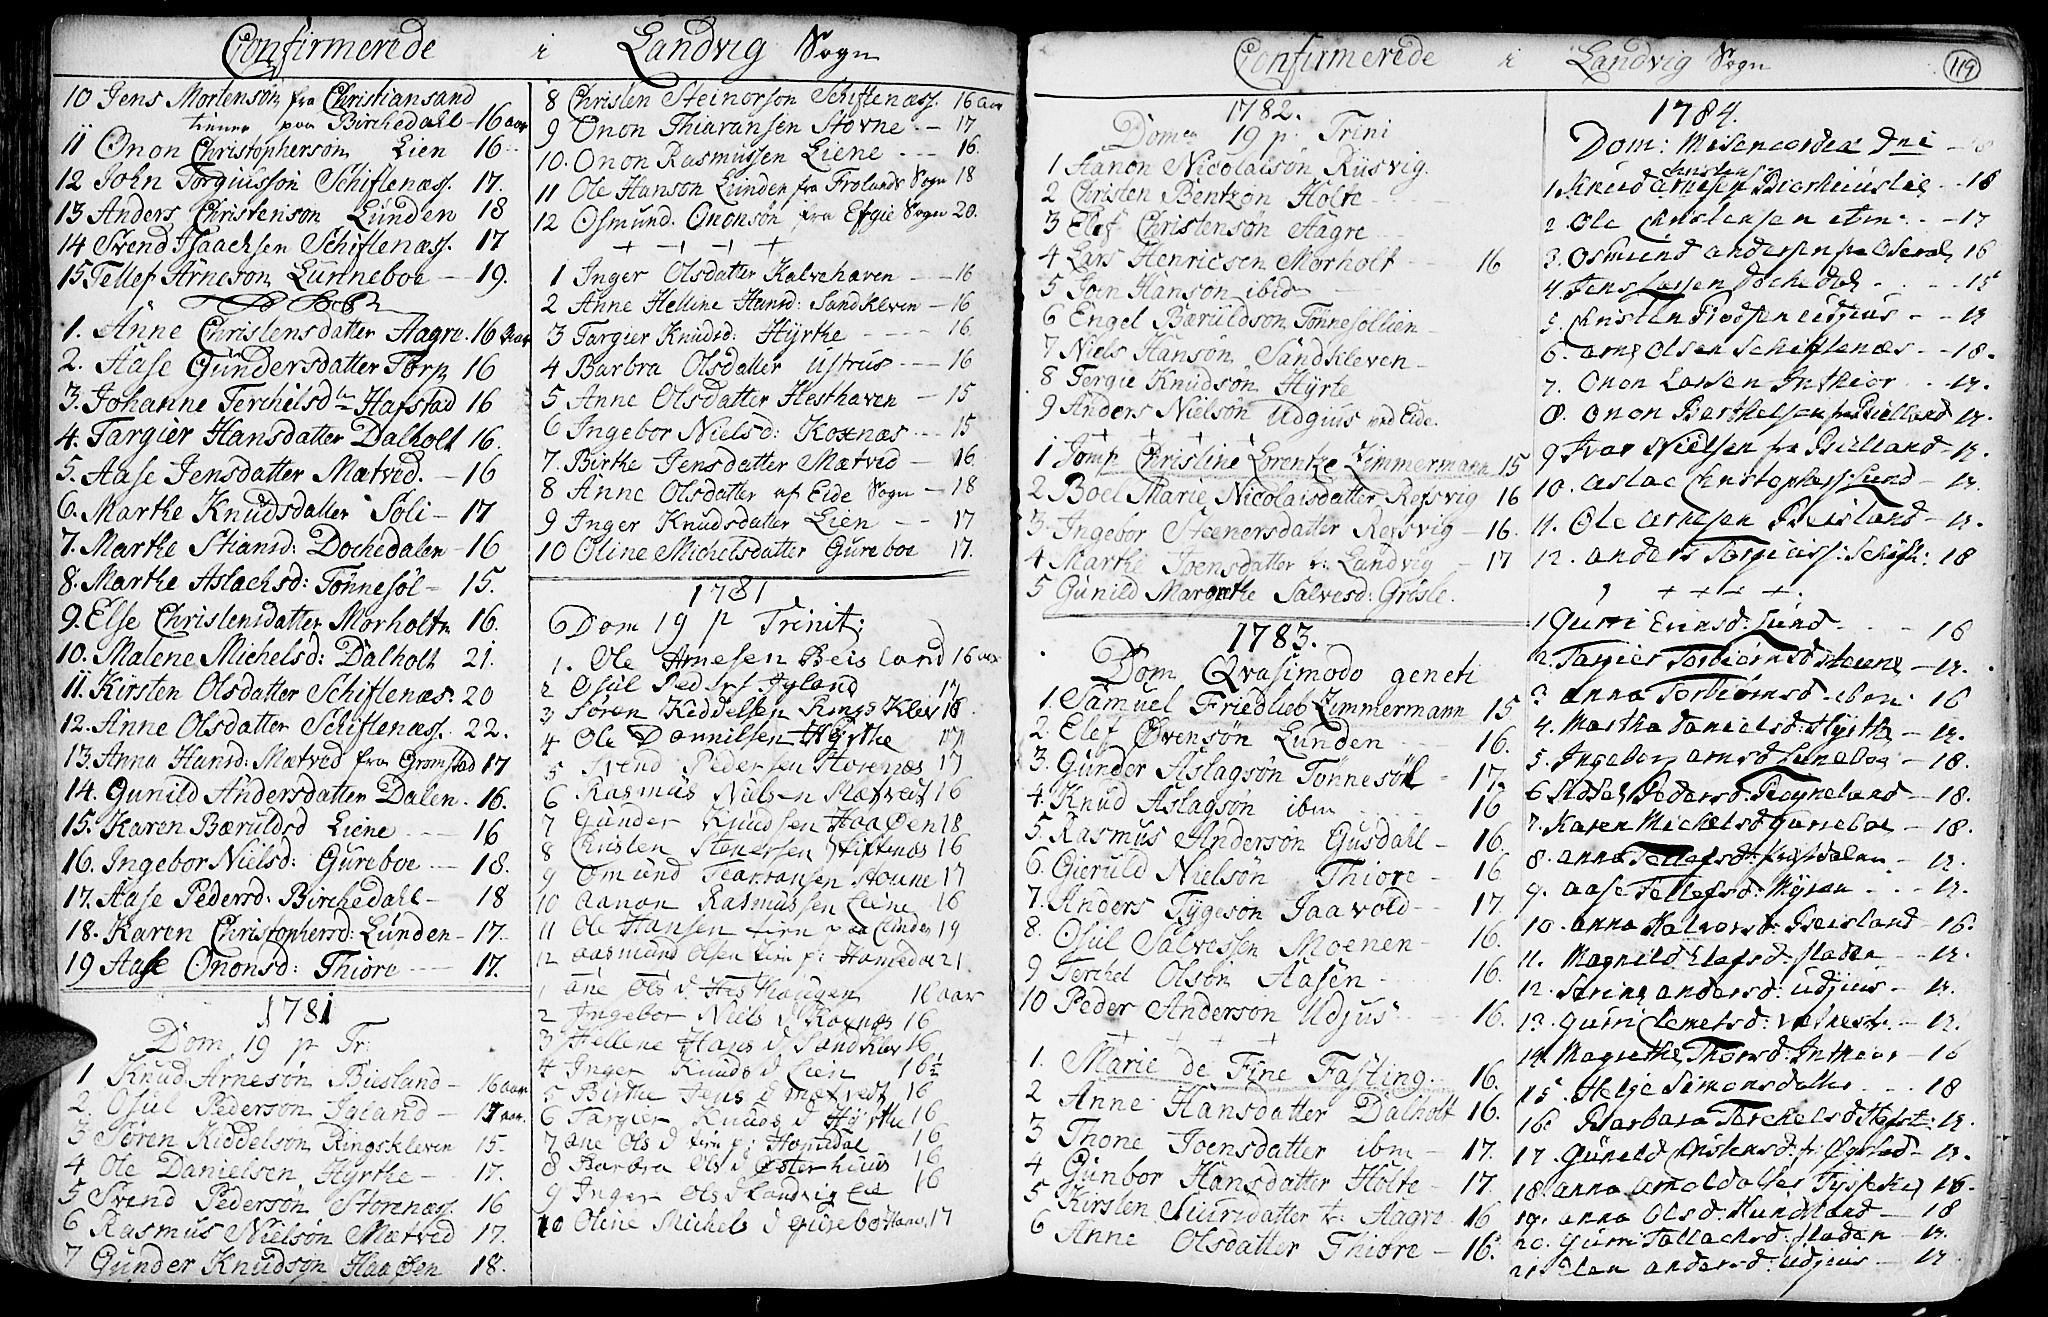 Confirmerede i Landvig Sogn
10 Jens Mortensøn fra Christiansand
tiener paa Birchedahl - 16 aar
11 Onon Christophersøn Lien 16
12 John Torgiussøn Schiftenæss. 17.
13 Anders Christensøn Lunden 18
14 Svend Isaachsen Schiftenæss. 17
15 Tellef Arnesøn Lunneboe - 19.
1. Anne Christensdatter Aagre. 16 aar
2. Aase Gundersdatter Torp 16
3. Johanne Terchilsdr Hafstad 16
4. Targier Hansdatter Dalholt 16.
5. Aase Jensdatter Mætved. - 16
6. Marthe Knudsdatter Søli - 17
7. Marthe Stiansd: Dochedalen - 16
8. Marthe Aslachsd: Tønnesøl - 15.
9. Else Christensdatter Morholtn 16.
10. Malene Michelsd: Dalholt 21.
11. Kirsten Olsdatter Schiftenæs: 20
12. Anne Olsdatter Schiftenæss. 22.
13. Anna Hansd: Mætved fra Gromstad 17
14. Gunild Andersdatter Dalen. 16.
15. Karen Bæruldsd Liene - 16
16. Ingebor Nielsd: Gureboe - 18.
17. Aase Pedersd: Birchedahl - 18
18. Karen Christophersd: Lunden - 17.
19 Aase Ononsd: Thiore - 17.
1781
Dom 19 p Tr:
1 Knud Arnesøn Biesland - 16 aar
2. Osul Pedersøn Igland - 17 aar.
3 Søren Kiddelsøn Ringskleven 15.
4. Ole Danielsen Hyrthe - 17.
5 Svend Pedersøn Storenæss. 16
6 Rasmus Nielsøn Mætved 17.
7 Gunder Knudsøn Haaøen 18.
8 Christen Steinorsøn Schiftenæss. 16 aar
9 Onon Thiaransen Stovne - 17
10. Onon Rasmussen Liene - 16.
11 Ole Hansøn Lunden fra Frolands Sogn 18
12 Osmund Ononsøn fra Efgie Sogn 20.
+ + + +
1 Inger Olsdatter Kalvehaven - 16
2 Anne Hellene Hansd: Sandkleven - 16
3 Targier Knudsd: Hyrthe - 16.
4 Barbra Olsdatter ustrus - 16
5 Anne Olsdatter Hesthaven - 15
6 Ingebor Nielsd: Koxnæs - 15
7. Birthe Jensdatter Mætved - 16.
8 Anne Olsdatter af Eide Sogn - 18
9 Inger Knudsdatter Lien - 17
10 Oline Michelsdatter Gureboe 17.
1781
Dom 19 p Trinit:
1. Ole Arnesen Beisland 16 aar
2 Osul Peders Iyland 17
3 Søren Kiddelsen Rings Klev 18
4 Ole Dannilsen Hyrthe 17
5 Svend Pedersen Storenæs 17
6 Rasmus Nielsen Mætveit 16
7 Gunder Knudsen Haaøen 18
8 Christen Stenersen Skiftenæs 16
9 Omund Tearransen Stoune 17
10 Aanon Rasmussen Liene 16
11 Ole Hansen tien paa Lunden 19
12 aasmund Olsen tien p: Homedal 21
1 ane Ols d Hesthaugen 16 aar
2 Ingebor Niels d Koxnæs 16
3 Hellene Hans d Sandklev 16
4 Inger Knuds d Lien 16½
5 Birthe Jens d mætvedt 16
6 Targier Knuds d Hyrthe 16
7 ane Ols d tien p: Homdal 16
8 Barbra Ols d Østerhuus 16
9 Inger Ols d Landvig Eie 16
10 Oline Michels d gurebo 17
Confirmerede i Landvig Sogn
119
1782.
Domca 19 p. Trini
1 Aanon Nicolaisøn Rusvig.
2 Christen Bentzon Holte
3 Elef Christensøn Aagre
4 Lars Henricsen Morholt 16
5 Joen Hansøn ibid
6 Engel Bæruldsøn Tønnesollien -
7 Niels Hansøn Sandkleven -
8 Tergie Knudsøn Hyrte
9 Anders Nielsøn Udgius ved Eide.
+ + + +
1 Jomf. Christine Lorentze Zimmermann 15
2 Boel Marie Nicolaisdatter Refsvig 16
3. Ingebor Steenersdatter Resvig - 16.
4 Marthe Joensdatter t: Landvig - 17
5 Gunild Margrethe Salvesd: Grøsle.
1783.
Dom Qvasimodo geneti
1. Samuel Friedlieb Zimmermann 15
2. Elef Øvensøn Lunden 16.
3. Gunder Aslagsøn Tønnesøl - 17.
4. Knud Aslagsøn ibm 16
5. Rasmus Andersøn Gusdahl - 16.
6. Gieruld Nielsøn Thiore - 16
7. Anders Tygesøn Jaavold - 17.
8. Osul Salvessen Moenen - 16.
9 Terchel Olsøn Aasen - 16.
10 Peder Andersøn Udjus 16.
+ + + +
1. Marie de Fine Fasting. 16.
2 Anne Hansdatter Dalholt 16.
3 Thone Joensdatter ibm - 17.
4 Gunbor Hansdatter Holte - 17.
5 Kirsten Siursdatter t: Aagre 16
6 Anne Olsdatter Thiore - 16.
1784.
Dom: Misericordia dni
1. Knud Arnesen Bierkuuslie - 18
2 Ole Christensen - 17
3. Osmund andersen fra 16
4. Jens Larsen Dochedal - 15
5. Christen Tiedsen Udjuus - 17.
6. arne Olsen Schiftenæs - 18.
7. Onon Larsen Inthior 17.
8. Onon Berthelsen fra Bielland 17.
9 Ivar Nielsen fr Bielland - 17.
10. Aslac Christophers: Lund - 17.
11. Ole Arnesen Beisland - 17.
12. anders Torgiuss: Schift: 18
+ + + +
1 Gurri Erinsd: Lund - 16
2. Targier Torbiørnsd Steene - 17.
3 anna Torbiørnsd ibm 16
4. Martha Danielsd: Hyrthe - 17.
5. Ingeborg arnsd Luneboe - 18.
6 Sidsel Pedersd: Røyneland - 18.
7. Karen Michelsd gureboe - 18.
8. anna Tellefsd: - 17.
9. aase Tellefsd: Myren - 17.
10. anna Halvorsd: Beisland - 16.
11. Magnild Elefsd: fladen - 17.
12. Sirine andersd: Udjuus - 17.
13. gurri Clemetsd: - 17.
14. Magrethe Thorsd: Inthior - 16
15. Helje Simonsdatter - 18
16. Barbara Terchelsd Hafst: 17.
17. Gunild Christensd: fr - 17.
18. anna arnoldatter 16.
19. anna Olsd: Hundland - 18
20. Gurri Tallachsd: fladen - 17.
21. Elen andersd: Udjuus - 17